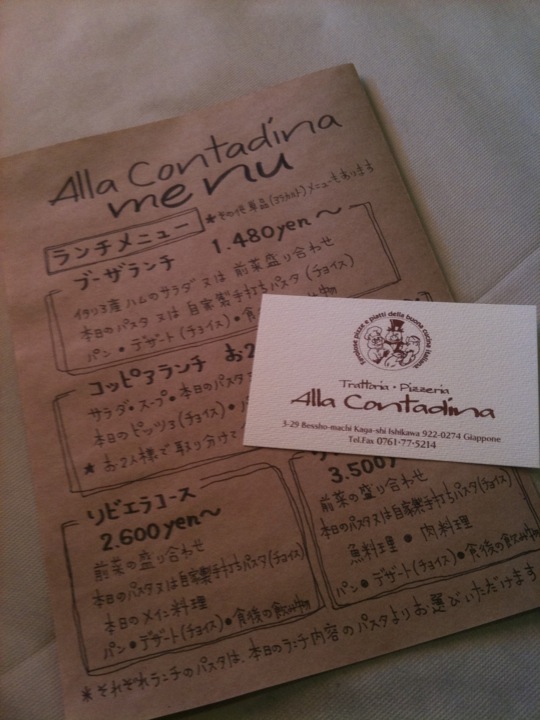 Alla Contadina
menu
ランチメニュー
*その他単品(アラカルト)メニューもあります
ブーザランチ 1.480yen〜
イタリア産ハムのサラダ 又は 前菜盛り合わせ
本日のパスタ 又は 自家製手打ちパスタ (チョイス)
パン・デザート(チョイス)・食
コッピアランチ お2
サラダ・スープ・本日のパスタ
本日のピッツァ(チョイス)・
★お2人様で取り分けて
リビエラコース
2.600yen〜
前菜の盛り合わせ
本日のパスタ又は自家製手打ちパスタ(チョイス)
本日のメイン料理
パン・デザート(チョイス)・食後の飲み物
3.500y
前菜の盛り合わせ
本日のパスタ又は自家製手打ちパスタ(チョイス)
魚料理・肉料理
パン・デザート(チョイス)・食後の飲み物
*それぞれランチのパスタは、本日のランチ内容のパスタよりお選びいただけます
pizze e piatti della buona cucina italiana
Trattoria・Pizzeria
Alla Contadina
3-29 Bessho-machi Kaga-shi Ishikawa 922-0274 Giappone
Tel.Fax 0761-77-5214